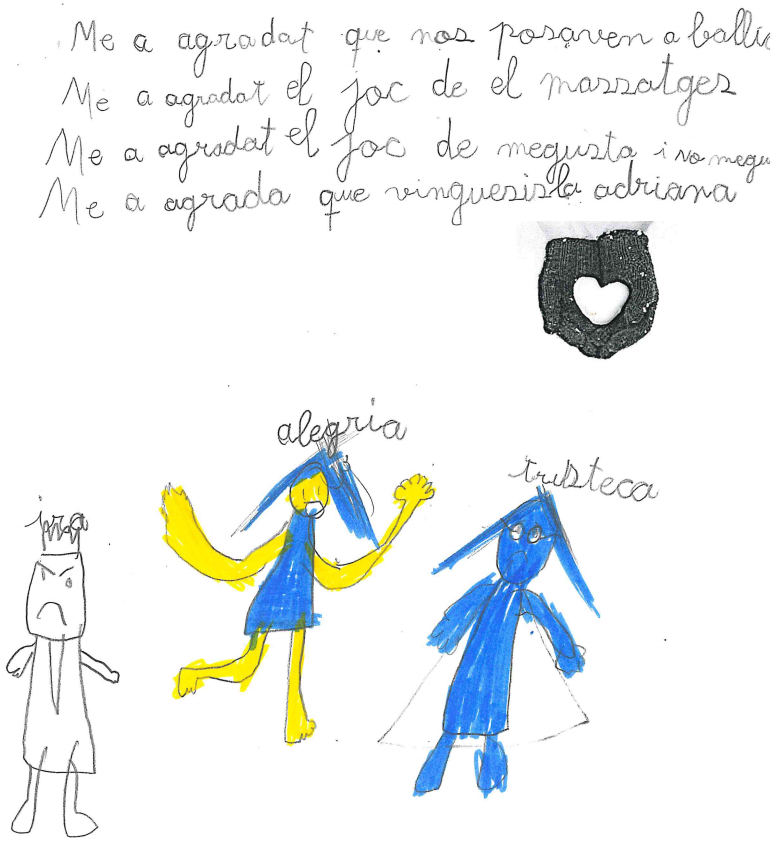 Me a agradat que nos posaven a ballic
Me a agradat el joc de el massatges
Me a agradat el joc de megusta i no megu
Me a agrada que vinguesis la adriana
alegria
tristeca
ira